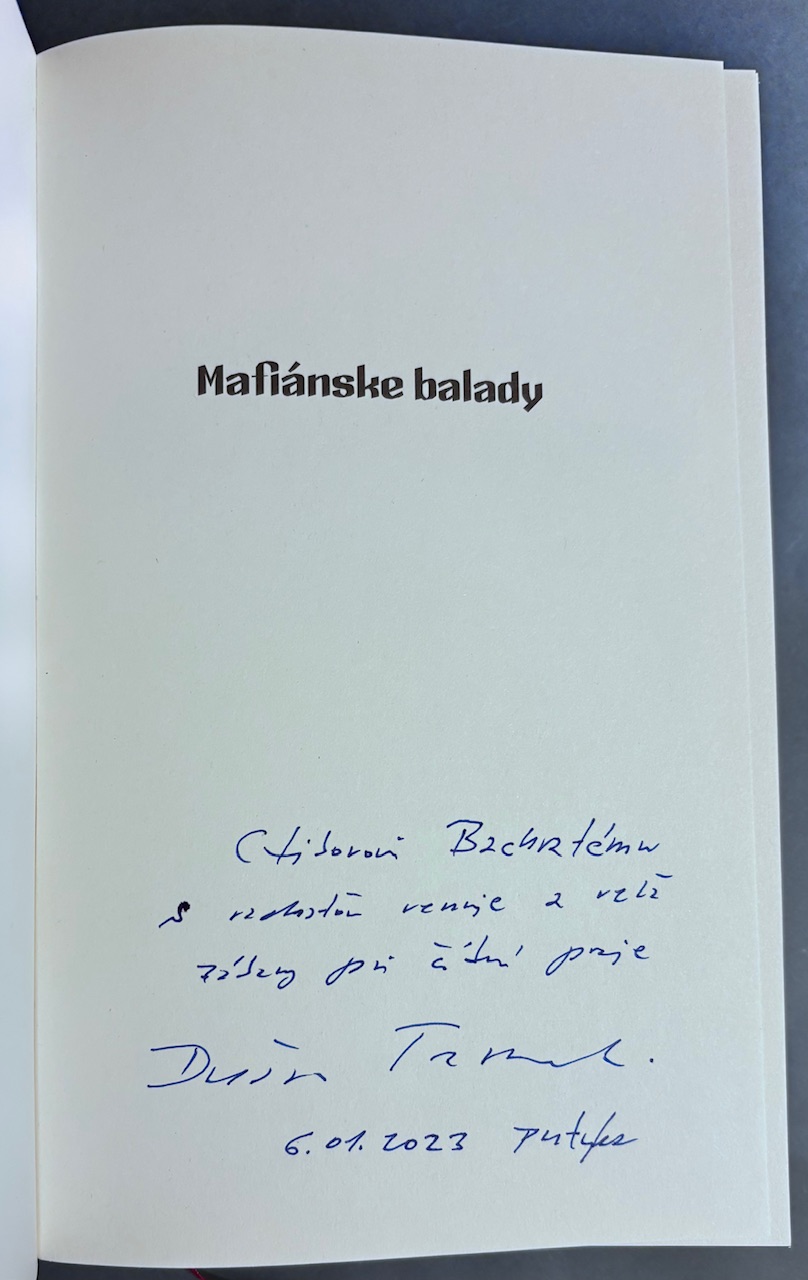 Mafiánske balady
Ctiborovi Bachratému
s radosťou venuje a veľa
zábavy pri čítaní praje
Dušan
6.01.2023